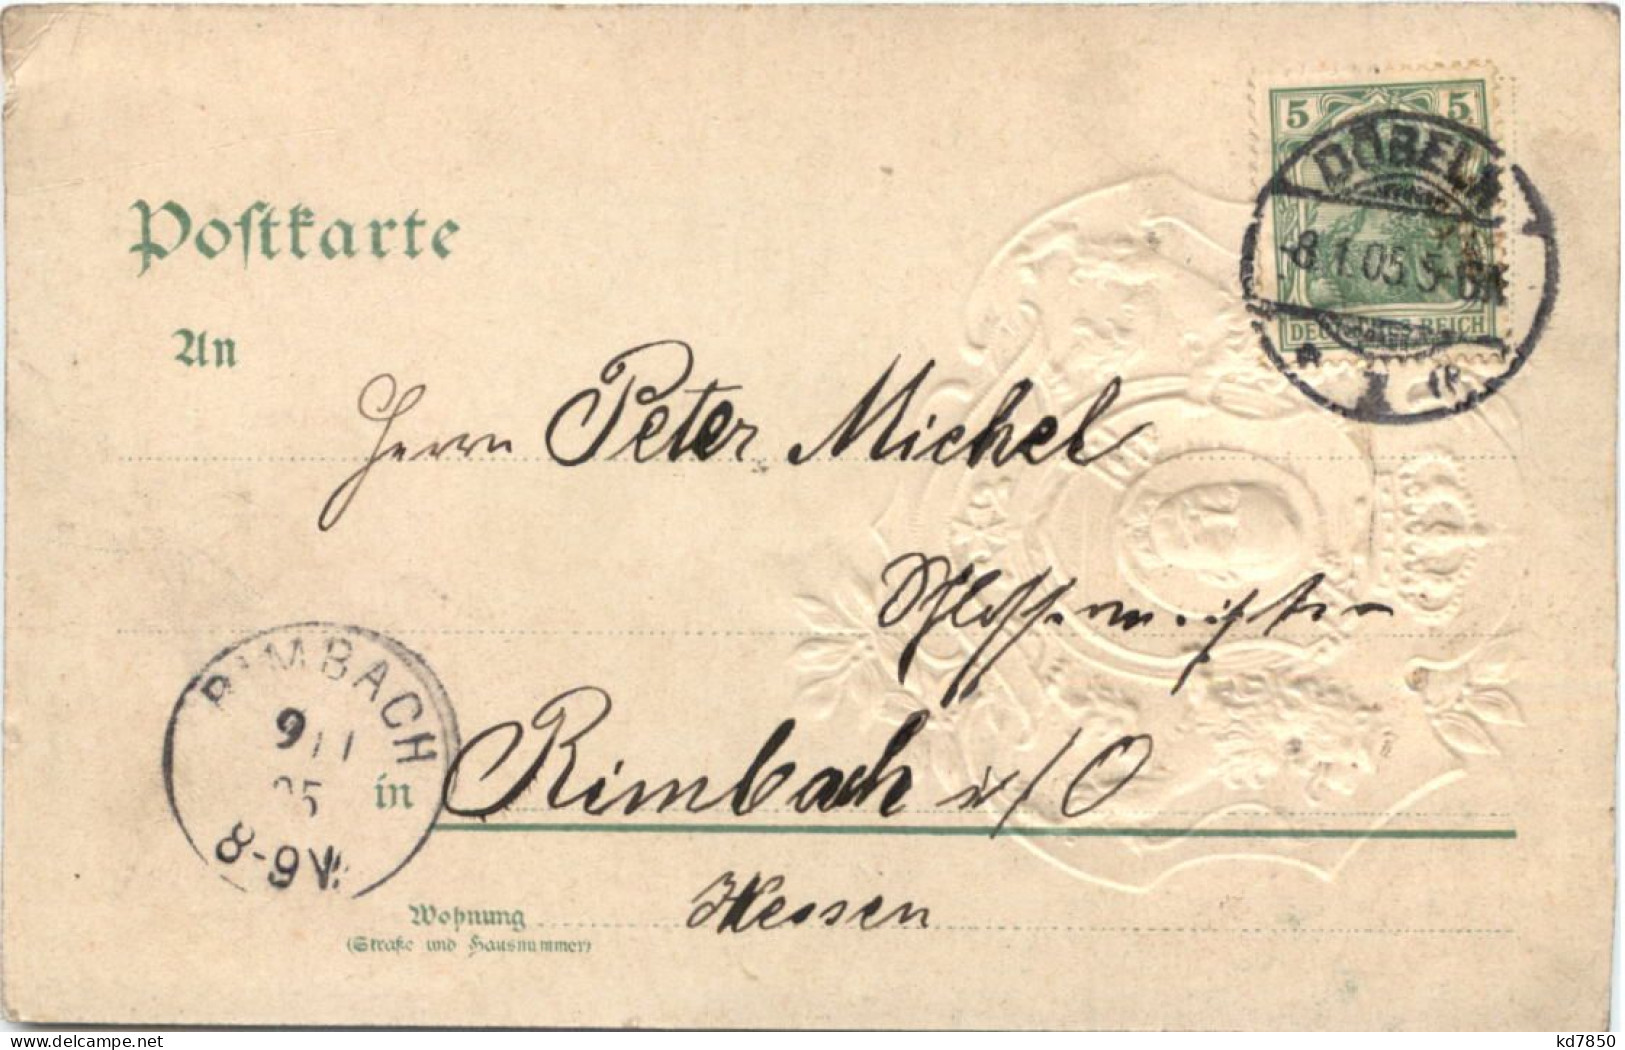 Postkarte
5 5
DÖBELN
-8.1.05. 5-6N
DEUTSCHES REICH
An
Herrn Peter Michel
Schlossermeister
RIMBACH
9 1
05
8-9V.
in Rimbach i/O
Hessen
Wohnung
(Straße und Hausnummer)
delcampe.net
kd7850